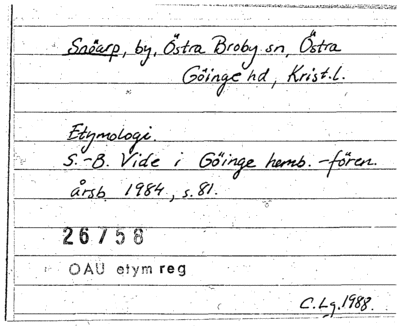 Snöarp, by, Östra Broby sn, Östra
Göinge hd, Krist.l.
Etymologi.
S.-B. Vide i Göinge hemb.-fören.
årsb. 1984, s. 81.
26758
OAU etym reg
C.Lg. 1988.